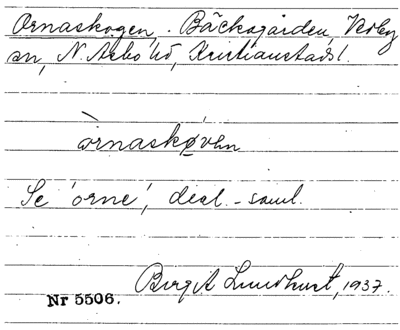 Ornaskogen, Bäckagården, Verby
sn, N. Åsbo hd, Kristianstads l.
òrnaskǿvən
Se 'orne', dial.-saml.
Birgit Lundhurst, 1937.
Nr 5506.